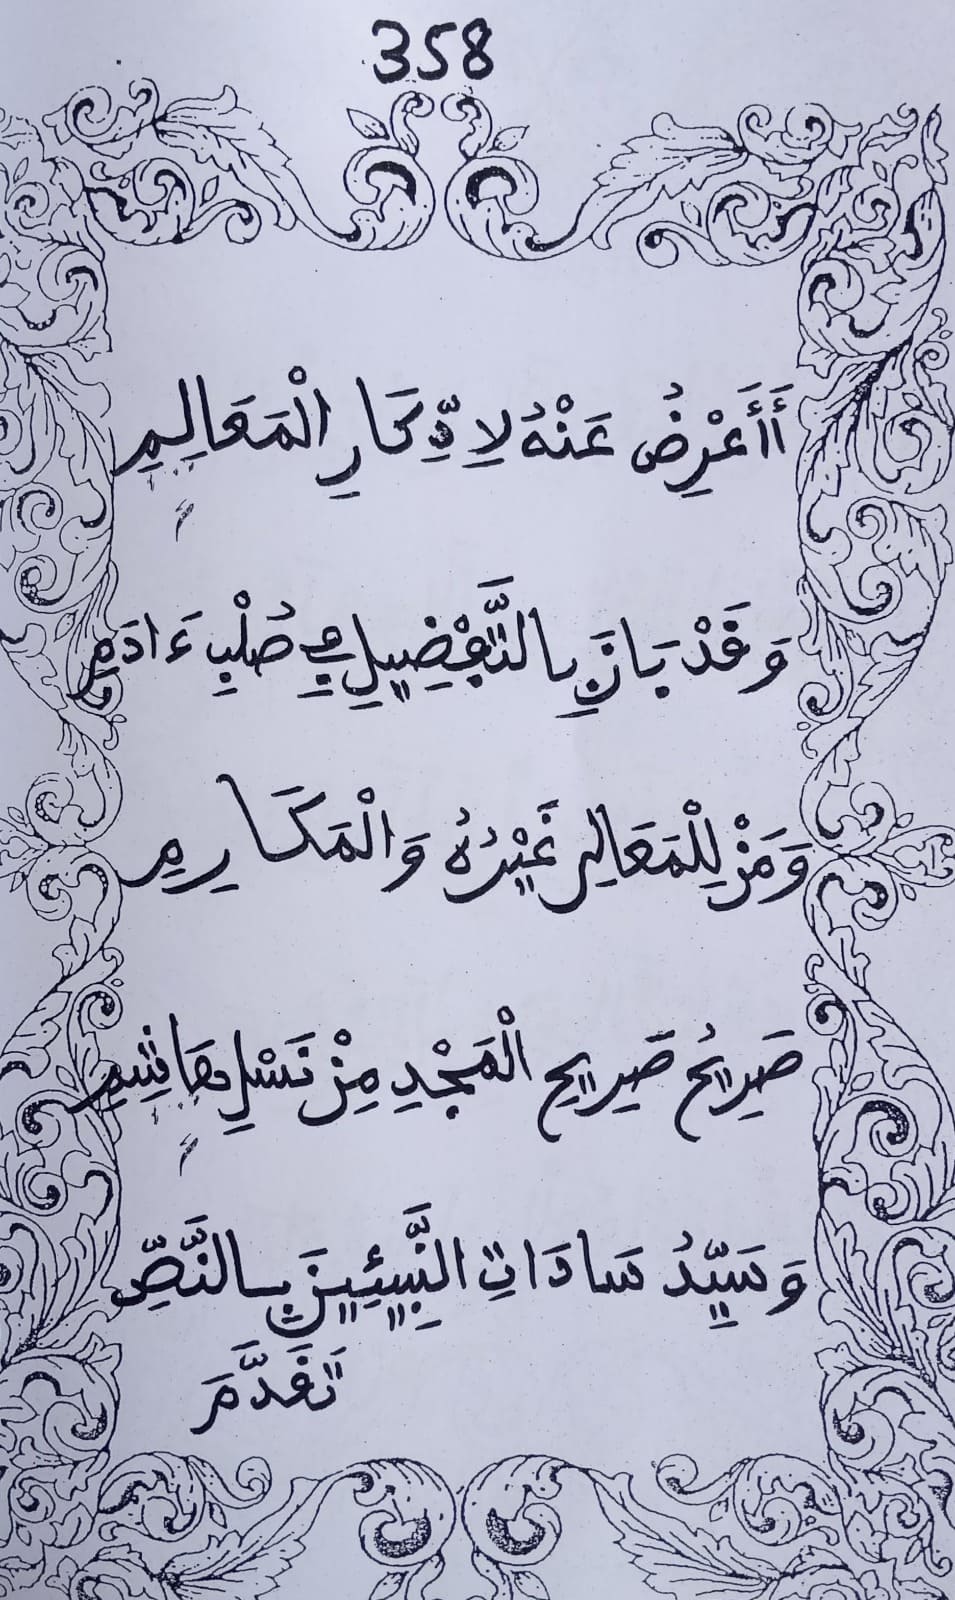 358
أَأَعْرِضُ عَنْهُ لِادِّكَارِ الْمَعَالِمِ
وَقَدْ بَانَ بِالتَّفْضِيلِ فِي صُلْبِ ءَادَمِ
وَمَنْ لِلْمَعَالِي غَيْرُهُ وَالْمَكَارِمِ
صَرِيحُ صَرِيحِ الْمَجْدِ مِنْ نَسْلِ هَاشِمِ
وَسَيِّدُ سَادَاتِ النَّبِيئِينَ بِالنَّصِّ
تَقَدَّمَ